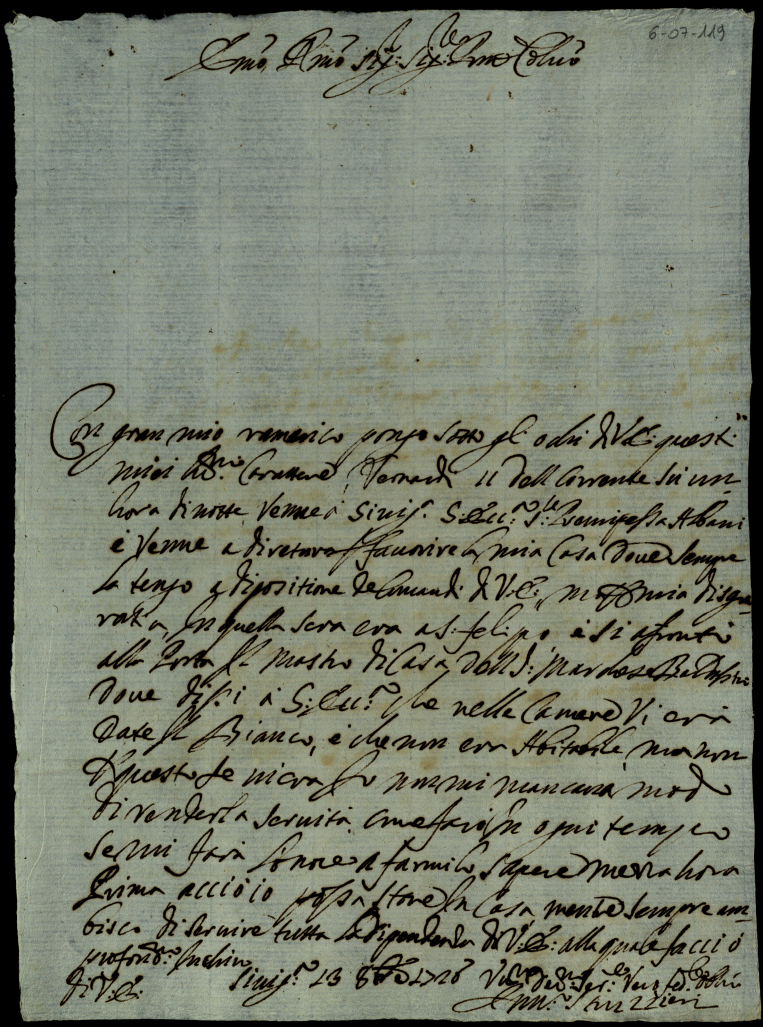 6-07-119
Emo, Rmo Sig: Sig:re Pne Colmo
Con gran mio ramarico pongo sotto gl'ochi di V.E: questi
miei Venardi 11 dell Corrente su un
hora di notte Venne a Sinig.a S: Ecc.a S:ra Prencipessa Albani
e Venne a diretura favorire la mia Casa Doue sempre
la tengo a dispositione de Comandi di V:E:, mia disgra
tia, In quella sera era a S: Felipo, e si afrontò
alla Porta Il Mastro di Casa Dell S:
Doue dissi à S: Ecc.a che nelle Camere Vi era
Date Il Bianco, e che non era Abitabile, ma non
non mi mancaua modo
di renderla seruita, come farò In ogni tempo
se mi farà honore a farmilo sapere mezza hora
Prima acciò io possa stare In Casa, mentre sempre am
bisco di seruire tutta la dipendenza di V:E: alla quale faccio
profond.mo Inchino
di V:E: Sinig.a 13 8bre 1726